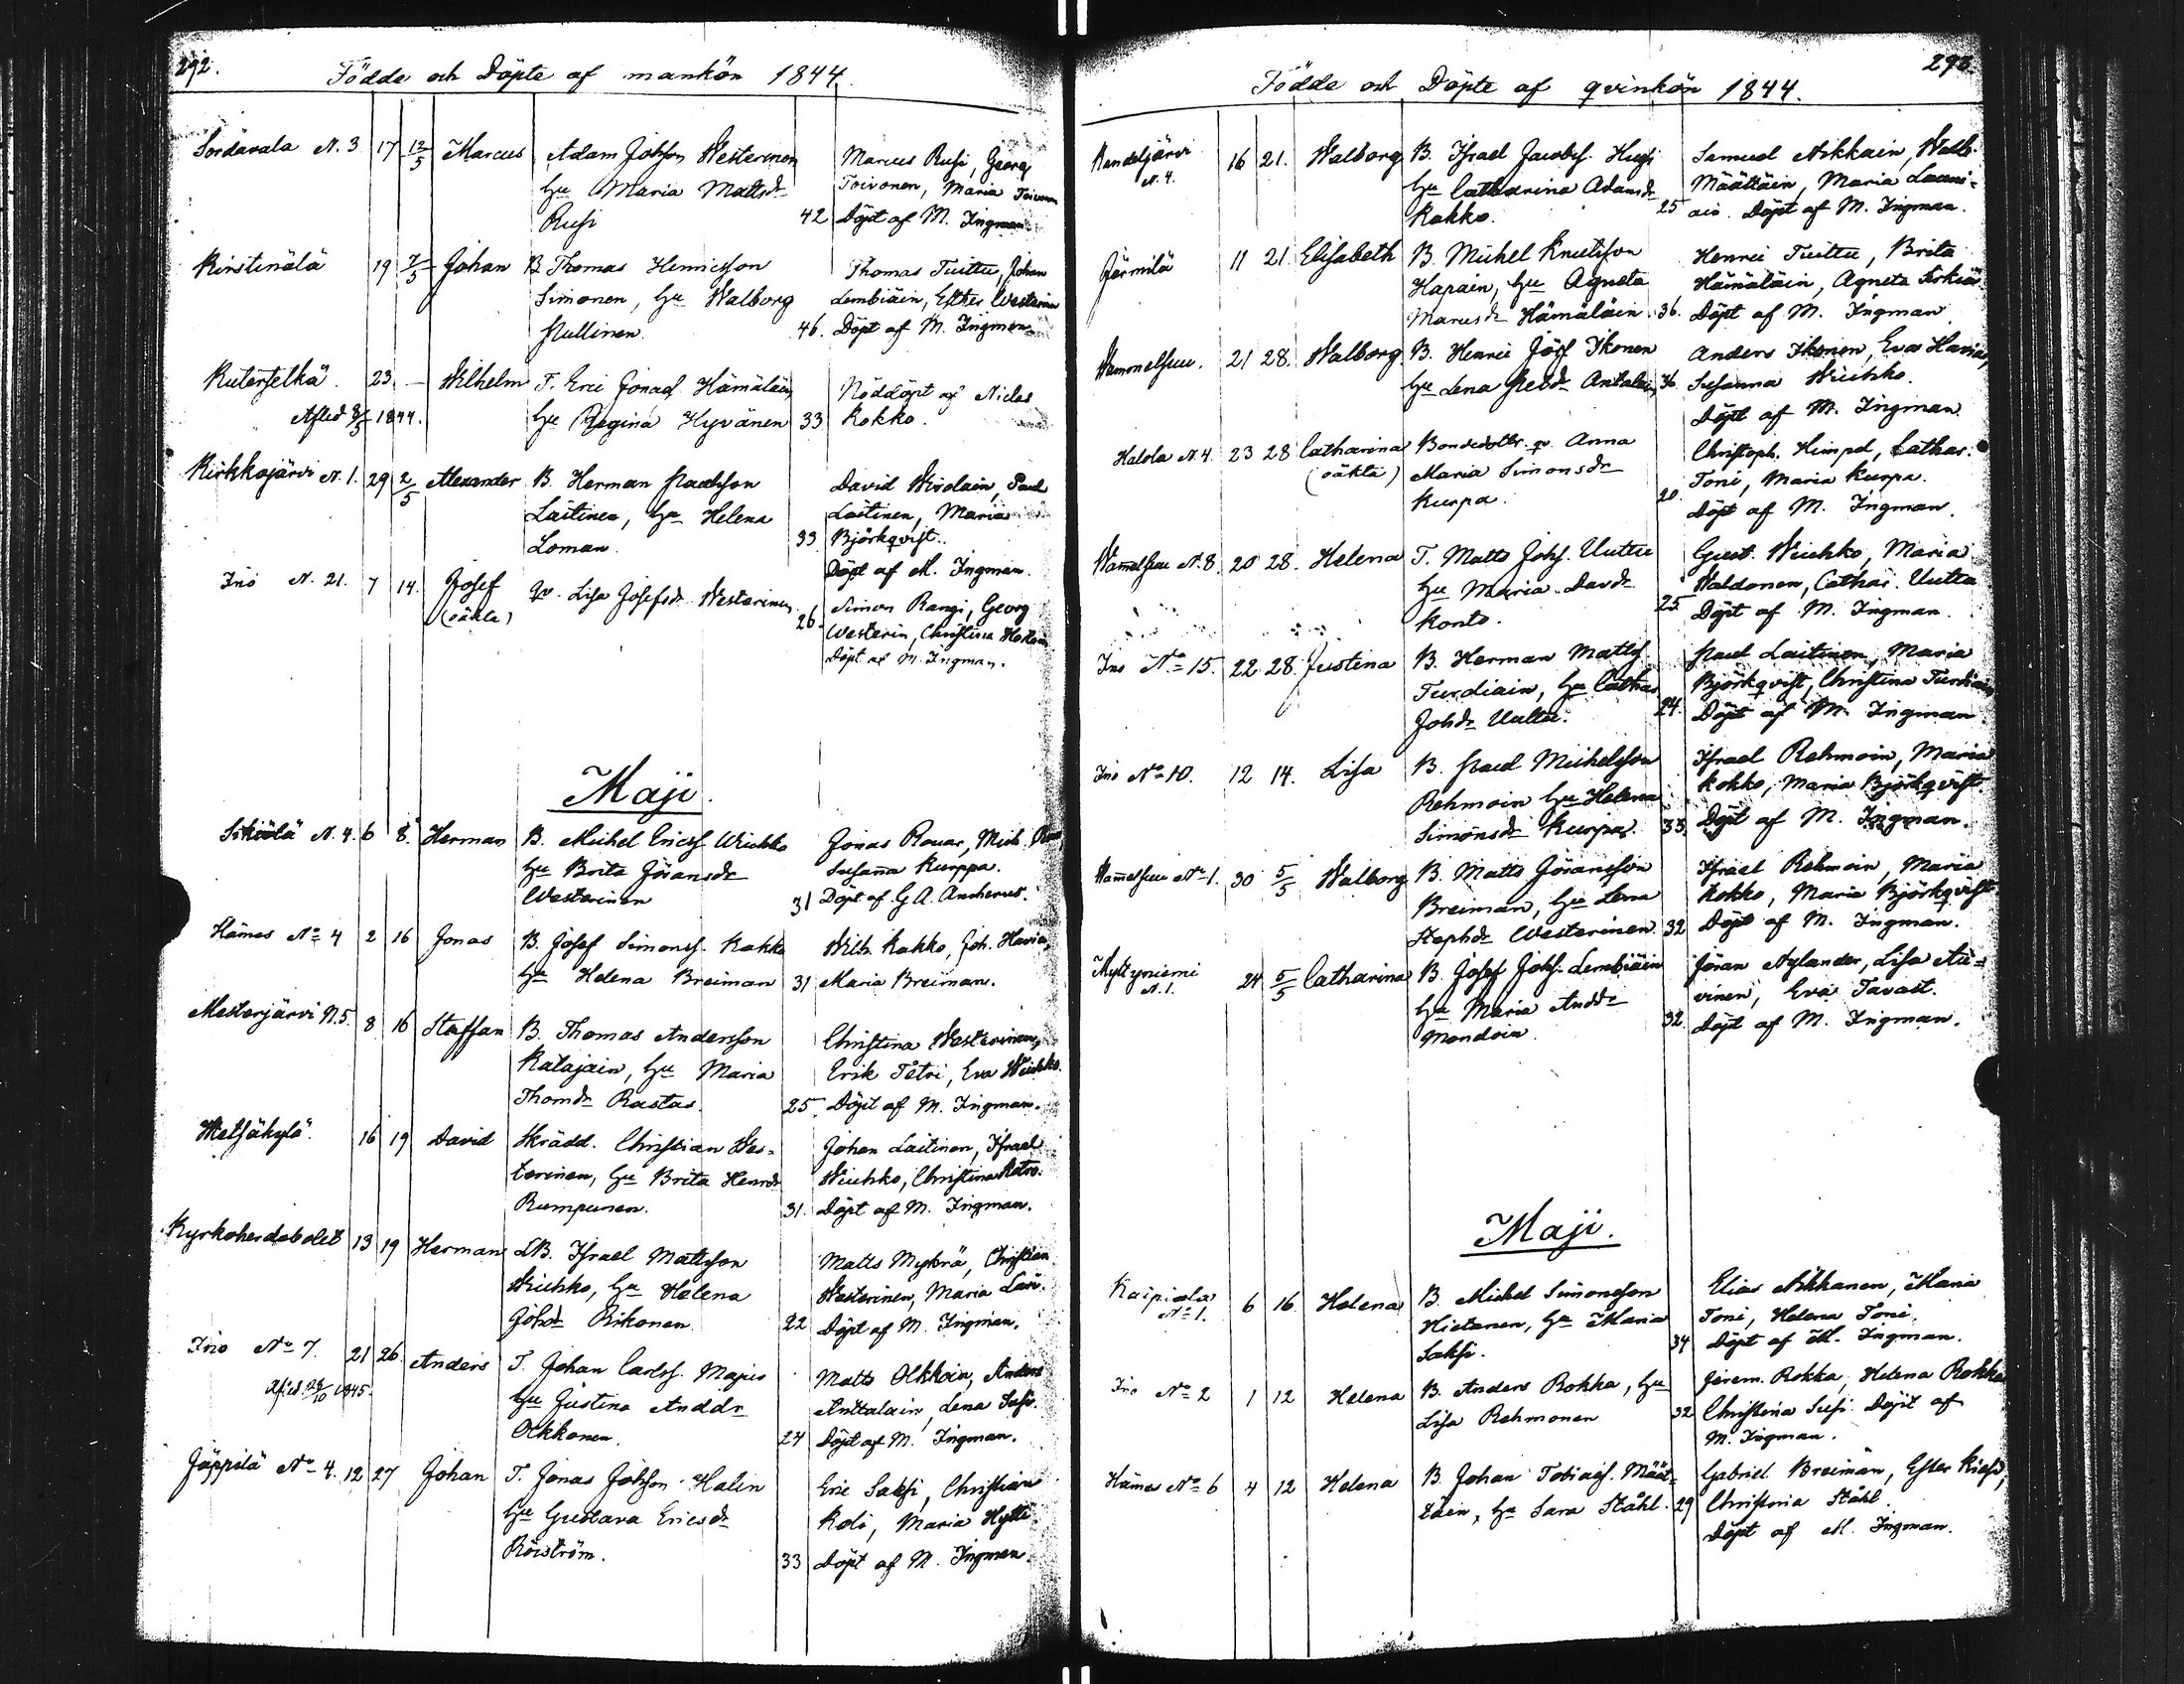 292.
Födde och Döpte af mankön 1844.
Sordavala N. 3 17 12/5 Marcus Adam Johsson Westerinen Marcus Rusi, Georg
hu Maria Mattsdr Toivonen, Maria Toivonen
Rusi 42 Döpt af M. Ingman
Kirstinälä 19 7/5 Johan B. Thomas Henricsson Thomas Tuittu, Johan
Simonen, hu Walborg Lembiäin, Esther Westerin
Pullinen 46. Döpt af M. Ingman
Kuterselkä. 23. — Wilhelm T. Eric Jonass. Hämäläin Nöddöpt af Niclas
Afled 8/5 1844. hu Regina Hyvänen 33 Kokko.
Kirkkojärvi N. 1. 29 2/5 Alexander B. Herman Paulsson David Wirolain, Paul
Laitinen, hu Helena Laitinen, Maria
Loman. 33 Björkqvist.
Döpt af M. Ingman.
Ino N. 21. 7 14. Josef Qv. Lisa Josefsdr Westerinen 26 Simon Rangi, Georg
(oäkta) Westerin, Christina
Döpt af M. Ingman.
Maji.
N. 4. 6 8. Herman B. Michel Ericss. Wichko Jonas Rouar, Mich.
hu Brita Jöransdr Susanna Kurppa.
Westerinen 31 Döpt af G. A. Ancherus.
Hämes No 4 2 16 Jonas B. Josef Simonss. Kakko Wilh. Kakko, Joh. Havia,
hu Helena Breiman 31 Maria Breiman.
Mesterjärvi N. 5. 8 16 Staffan B. Thomas Andersson Christina Westerinen,
Katajain, hu Maria Erik Tätri, Eva Wichko.
Thomdr Rastas. 25. Döpt af M. Ingman.
Metsäkylä. 16 19 David Skrädd. Christian Wes= Johan Laitinen, Israel
terinen, hu Brita Henrdr Wichko, Christina
Rumpunen. 31. Döpt af M. Ingman.
Kyrkoherdebolet 13 19 Herman LB. Israel Mattsson Matts Mykrä, Christian
Wichko, hu Helena Westerinen, Maria
Johdr Rikonen 22 Döpt af M. Ingman.
Ino No 7. 21 26. Anders T. Johan Carlss. Matts Olkkoin, Anders
Afled 28/10 1845. hu Justina Anddr Anttalain, Lena Susi.
Olkkonen. 24 Döpt af M. Ingman.
Jäppilä No 4. 12 27 Johan T. Jonas Johsson Halin Eric Saksi, Christian
hu Gustava Ericsdr Koli, Maria Hytti.
Röiström. 33 Döpt af M. Ingman.
293.
Födde och Döpte af qvinkön 1844.
N. 4. 16 21. Walborg B. Israel Jacobss. Hugi Samuel Aikkain, Walb.
hu Catharina Adamsdr Määttäin, Maria Louni=
Kakko. 25 ais. Döpt af M. Ingman.
Järmilä 11 21. Elisabeth B. Michel Knutsson Henric Tuittu, Brita
Hapain, hu Agneta Hämäläin, Agneta
Marcusdr Hämäläin 36. Döpt af M. Ingman.
21 28. Walborg B. Henric Jöss. Ikonen Anders Ikonen, Eva Havia,
hu Lena Antalain 36. Susanna Wichko.
Döpt af M. Ingman.
Halola N. 4. 23 28 Catharina Bondedottr. qv. Anna Christoph. Himpel, Cathar.
(oäkta) Maria Simonsdr Toni, Maria Kurpa.
Kurpa. 20. Döpt af M. Ingman.
Wammelsuu N. 8. 20 28. Helena T. Matts Johs. Uuttu Gust. Wichko, Maria
hu Maria Davdr Waldonen, Cathar. Uutta
Konto. 25 Döpt af M. Ingman.
Ino No 15. 22 28. Justina B. Herman Mattss. Paul Laitinen, Maria
Turdiain, hu Cathar. Björkqvist, Christina Turdiain
Johdr Uuttu. 24. Döpt af M. Ingman.
Ino No 10. 12 14. Lisa B. Paul Michelsson Israel Rehmoin, Maria
Rehmoin hu Helena Kokko, Maria Björkqvist
Simonsdr Kurpa. 33. Döpt af M. Ingman.
Wammelsuu No 1. 30 5/5 Walborg B. Matts Jöransson Israel Rehmoin, Maria
Breiman, hu Lena Kokko, Maria Björkqvist
Stephdr Westerinen 32 Döpt af M. Ingman.
N. 1. 24 5/5 Catharina B. Josef Johs. Lembiäin Jöran Aylander, Lisa Au=
hu Maria Anddr vinen, Eva Tavast.
Mondoin. 32. Döpt af M. Ingman.
Maji.
Kaipiala No 1. 6 16. Helena B. Michel Simonsson Elias Aikkanen, Maria
Hietanen, hu Maria Toni, Helena Toni.
Saksi. 34 Döpt af M. Ingman.
Ino No 2 1 12 Helena B. Anders Rokka, hu Jerem. Rokka, Helena Rokka
Lisa Rehmonen 32 Christina Susi. Döpt af
M. Ingman.
Hämes No 6 4 12 Helena B. Johan Tobiass. Määt= Gabriel Breiman, Ester
täin, hu Sara Ståhl. 29 Christina Ståhl.
Döpt af M. Ingman.